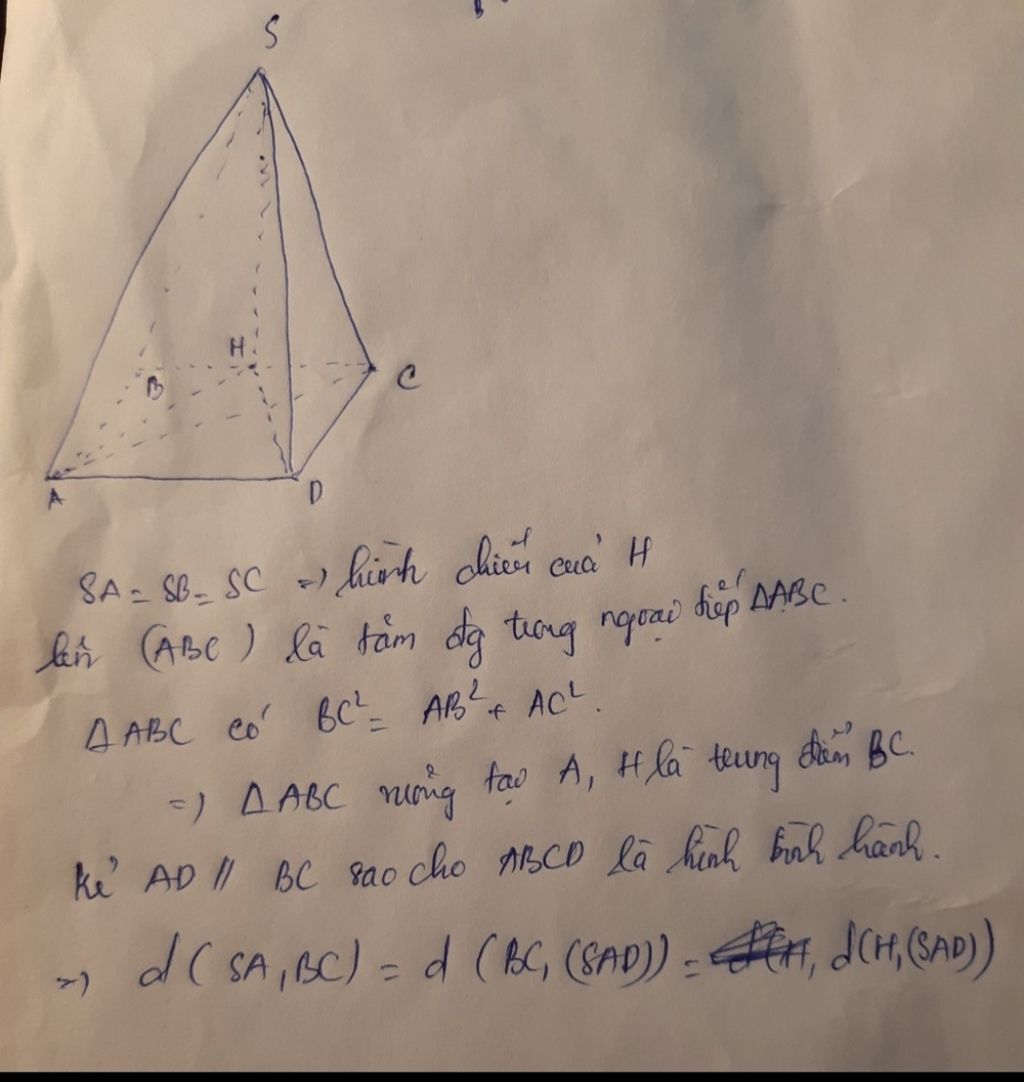 S
H
B
C
A
D
SA = SB = SC => hình chiếu của H
lên (ABC) là tâm đg tròng ngoại tiếp ΔABC.
ΔABC có BC² = AB² + AC².
=> ΔABC vuông tạo A, H là trung điểm BC.
Kẻ AD // BC sao cho ABCD là hình bình hành.
=> d(SA, BC) = d(BC, (SAD)) = d(H, (SAD))